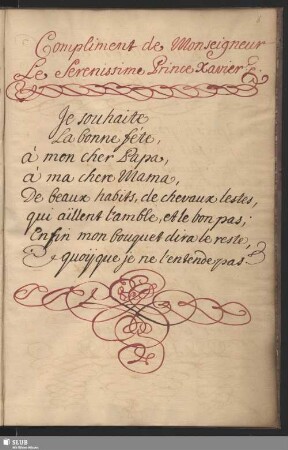 Compliment de Monseigneur
Le Serenissime Prince Xavier &c.
Je souhaite
La bonne fête,
à mon cher Papa,
à ma chere Mama,
De beaux habits, de chevaux lestes,
qui aillent l'amble, et le bon pas;
Enfin mon bouquet dira le reste,
quoy que je ne l'entende pas.
SLUB